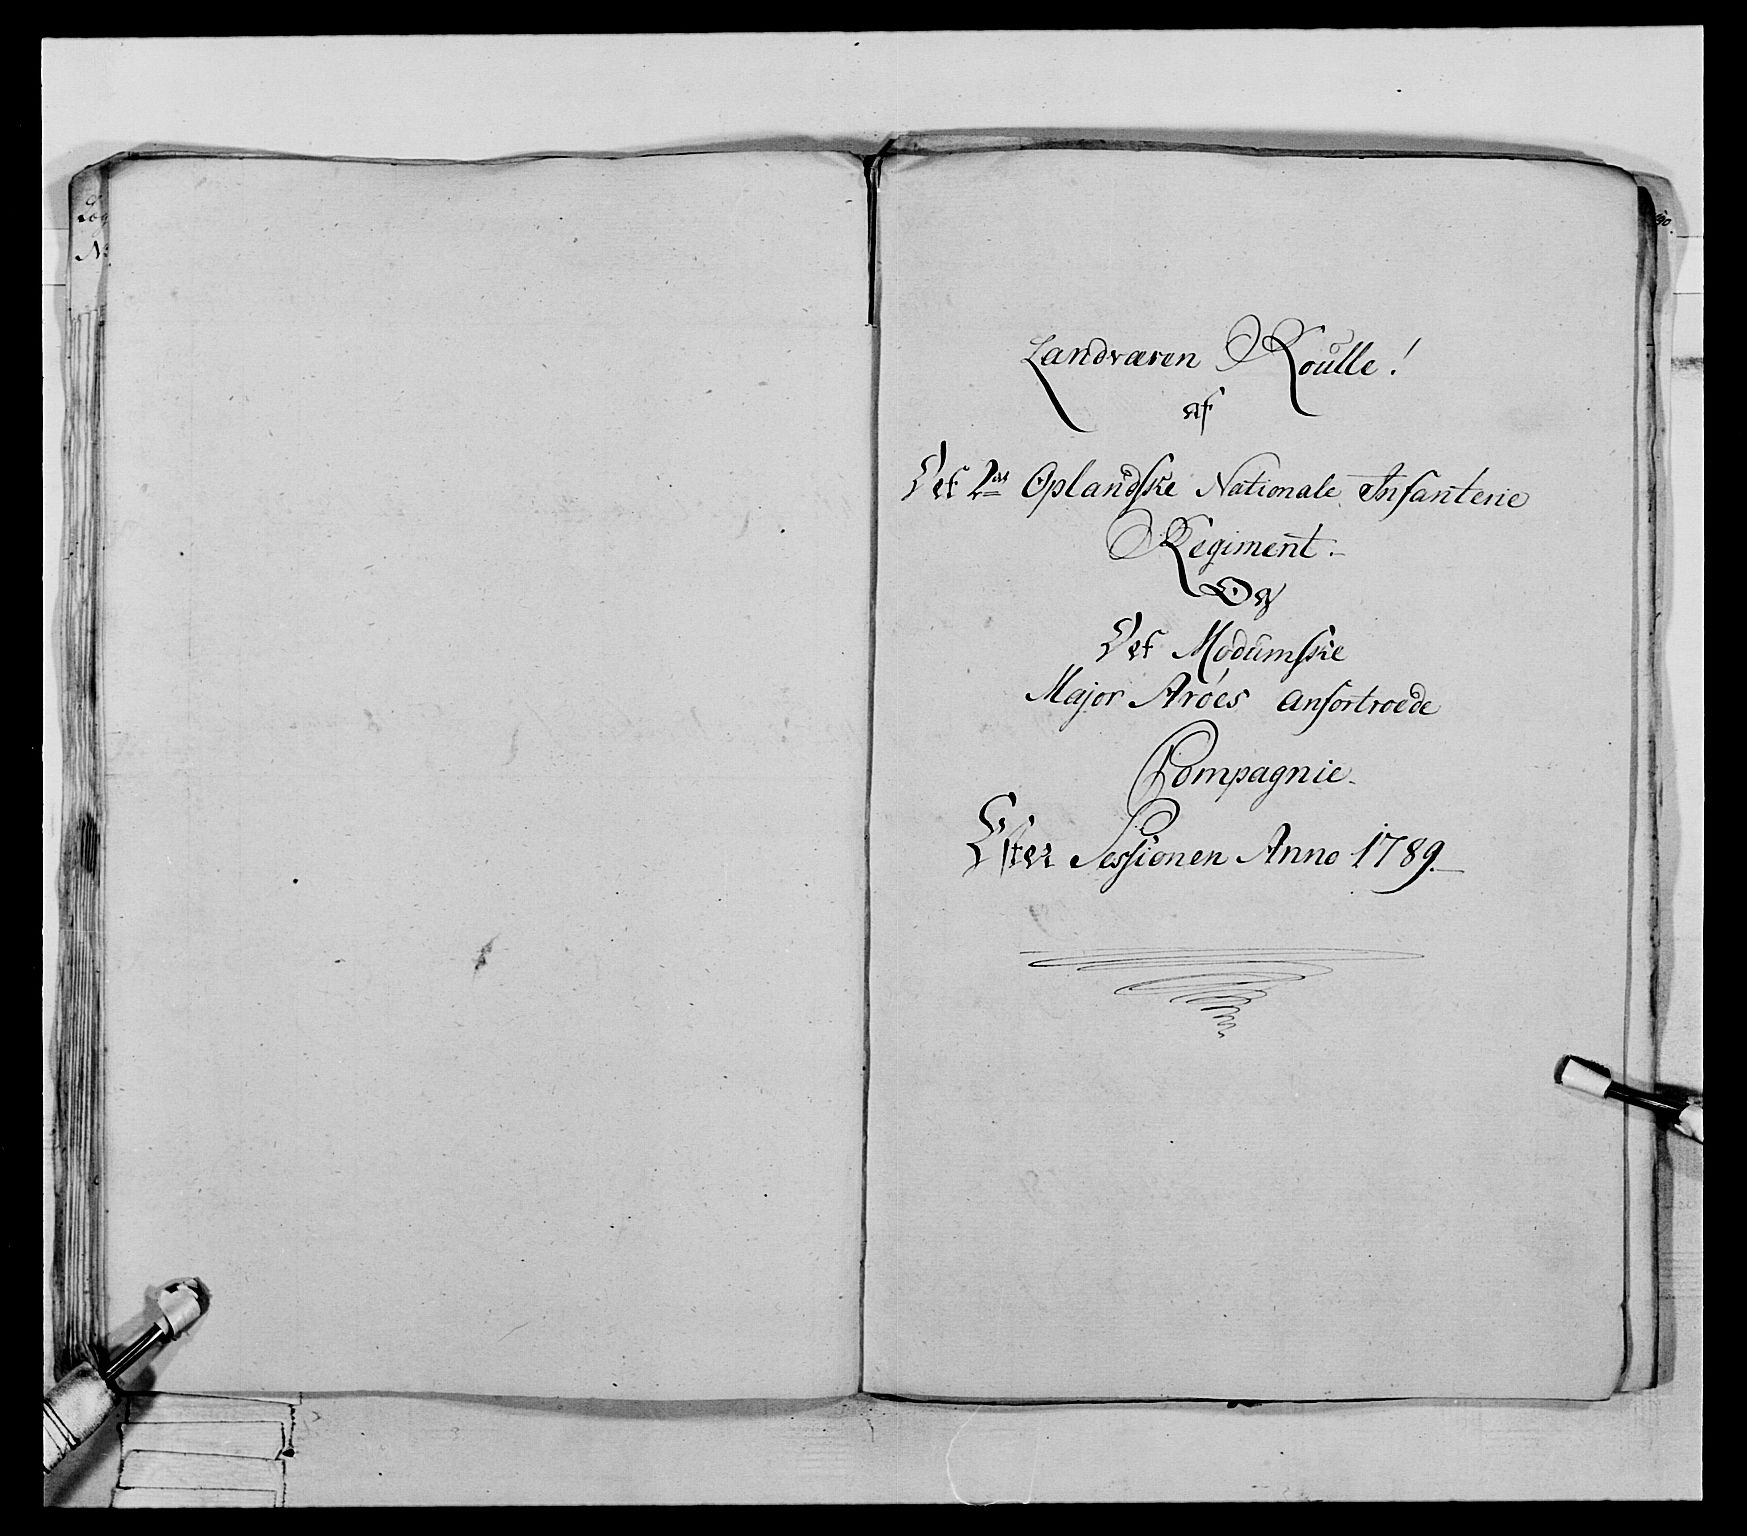 Landværen Roulle!
af
Det 2det Oplandske Nationale Infanterie
Regiment.
Og
Det Modumske
Major Aröes anfortroede
Compagnie
Efter Sessionen Anno 1789.